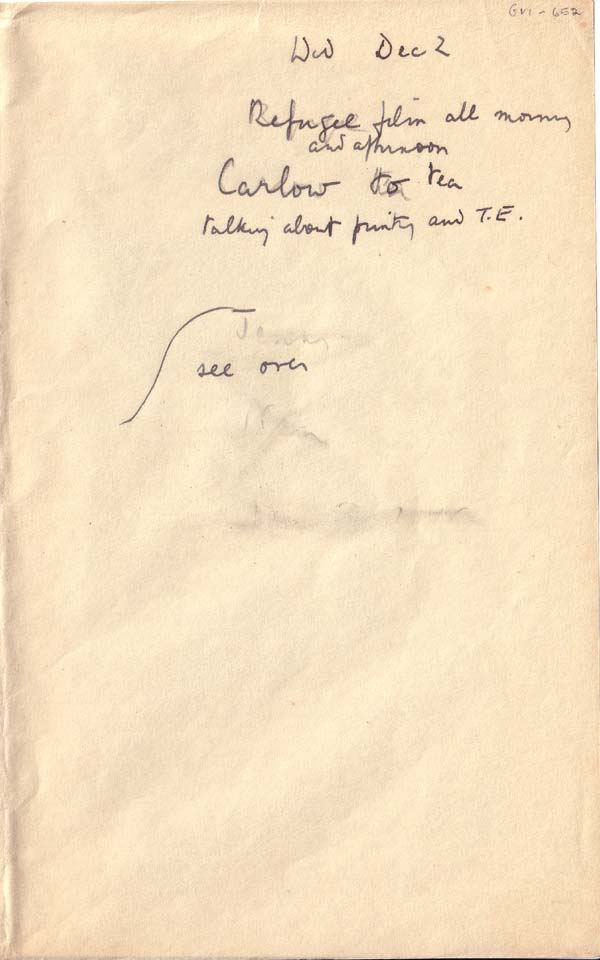 GVI - 652
Wed Dec 2
Refugee film all morning
and afternoon
Carlow to tea
talking about printing and T.E.
see over